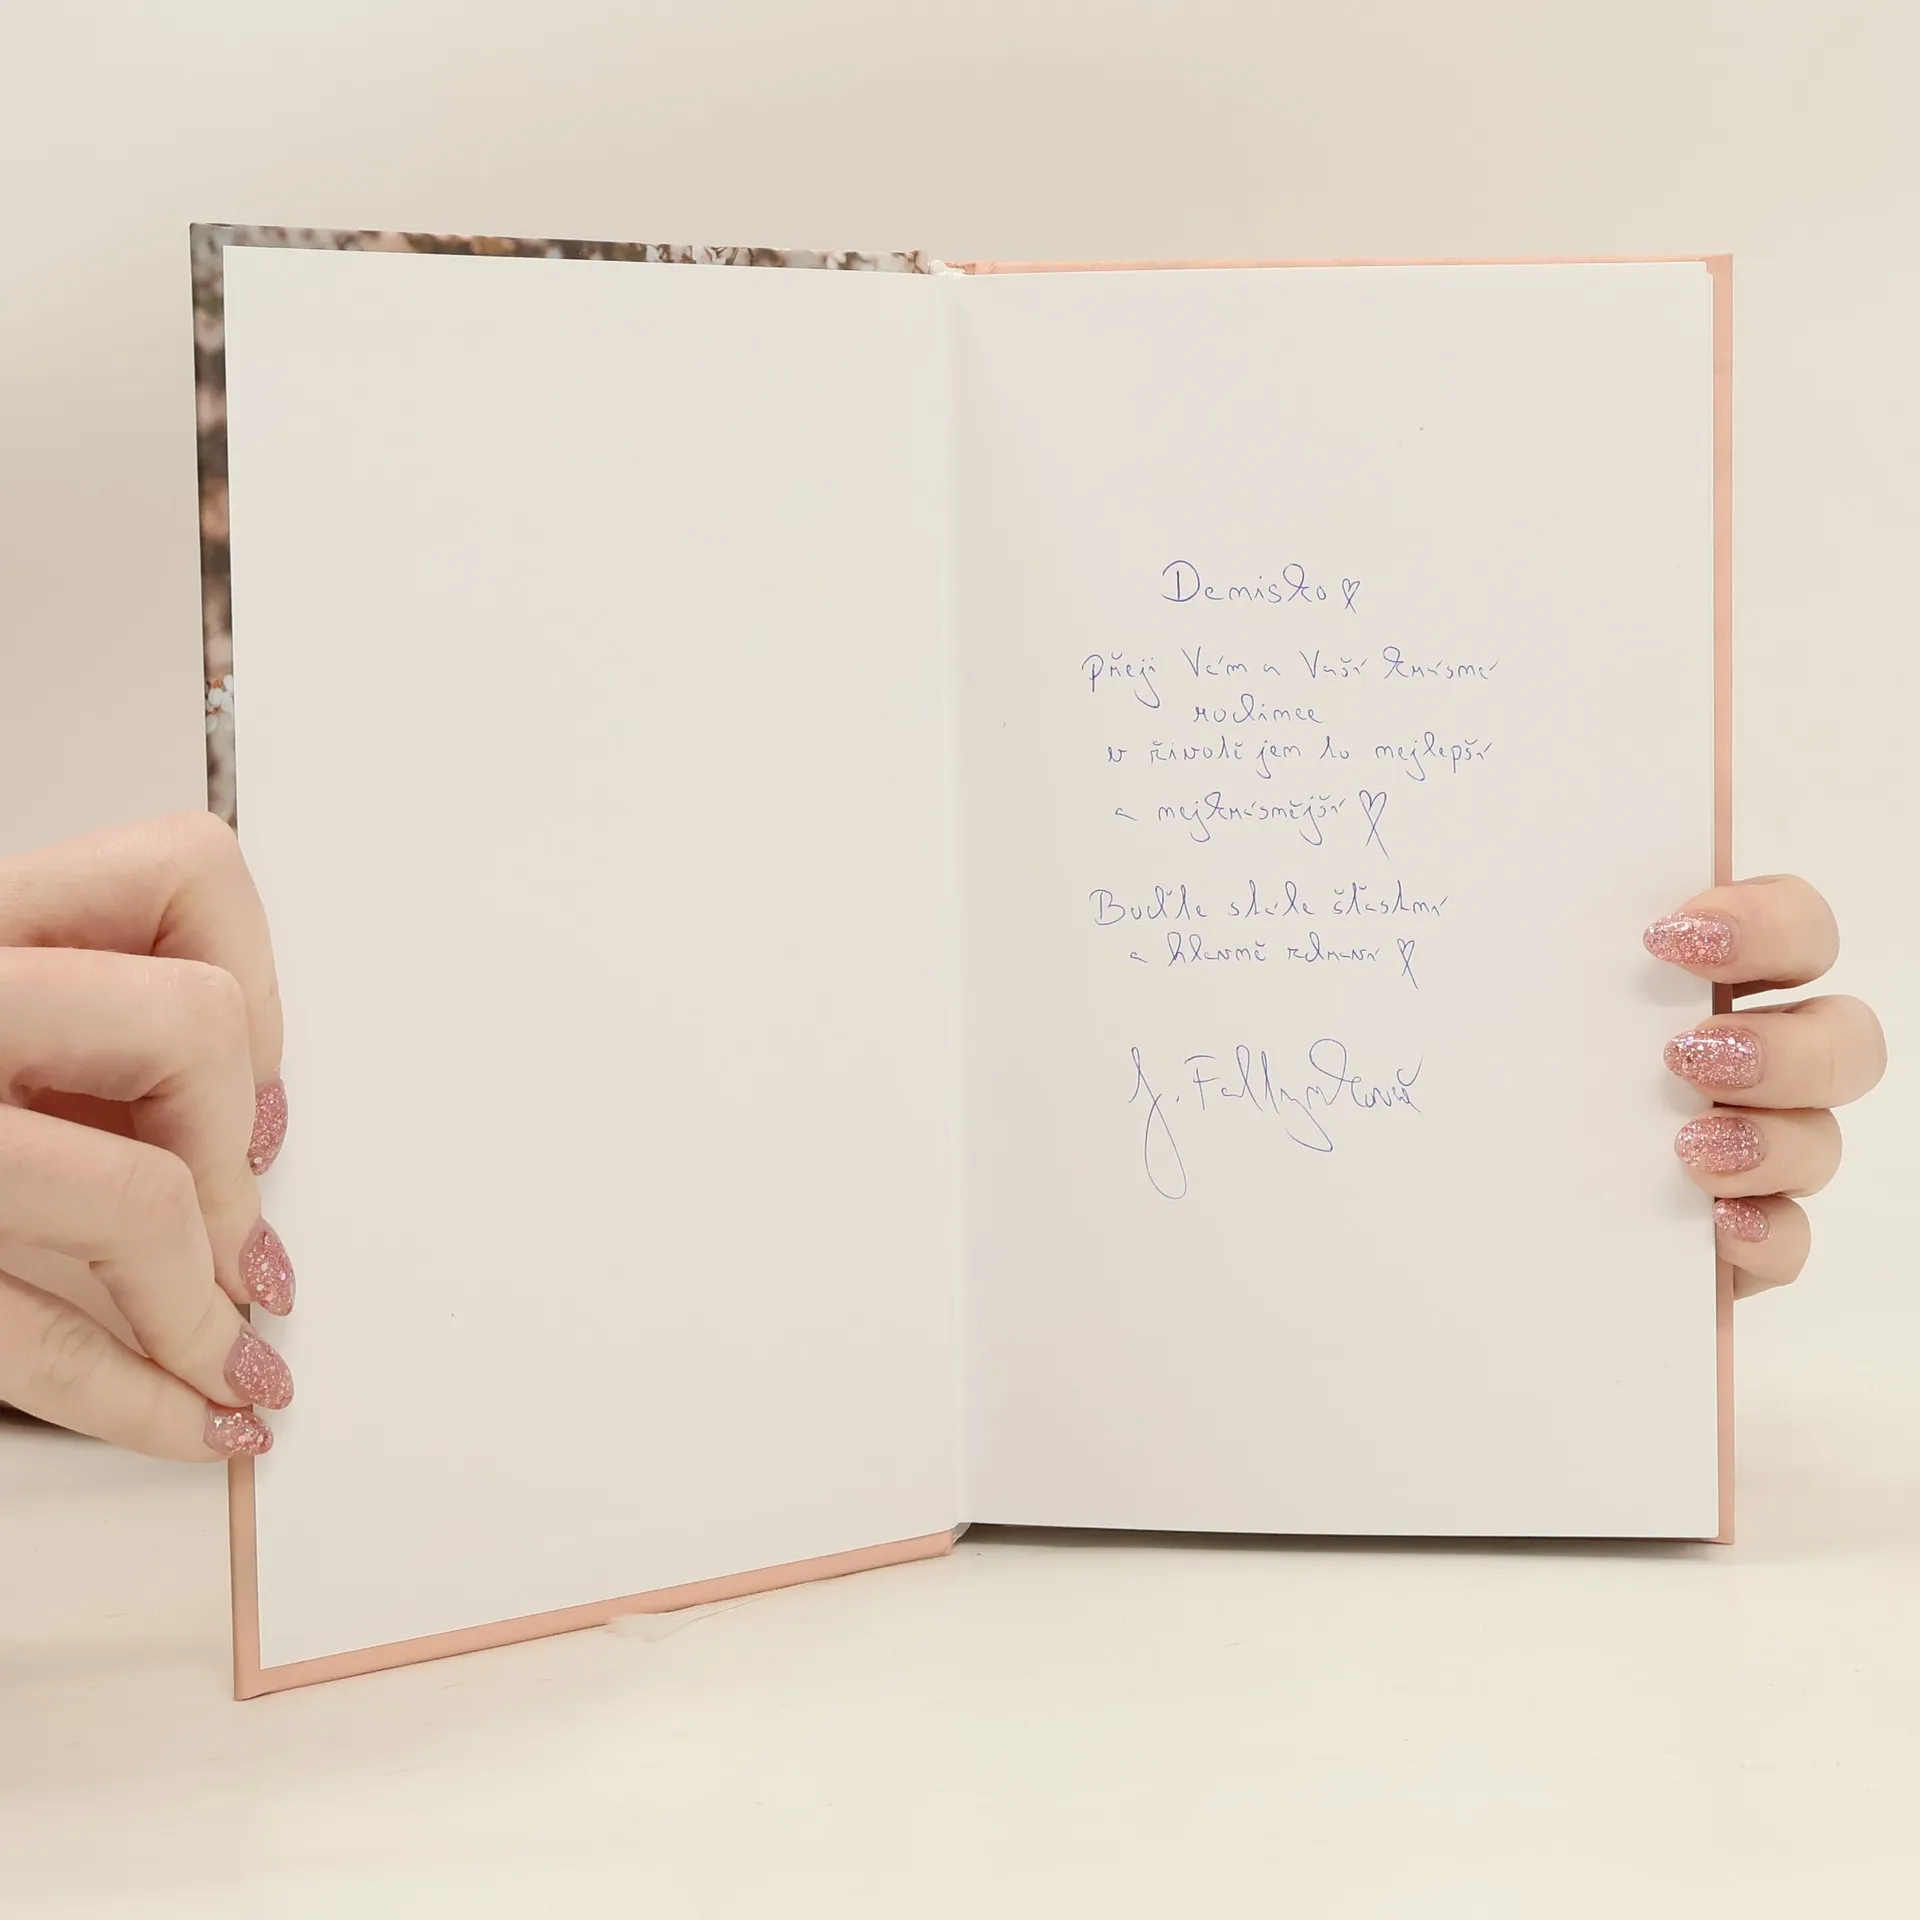 Denisko
Přeji Vám a Vaší krásné
rodince
v životě jen to nejlepší
a nejkrásnější
Buďte stále šťastní
a hlavně zdraví
J. Faltýnková